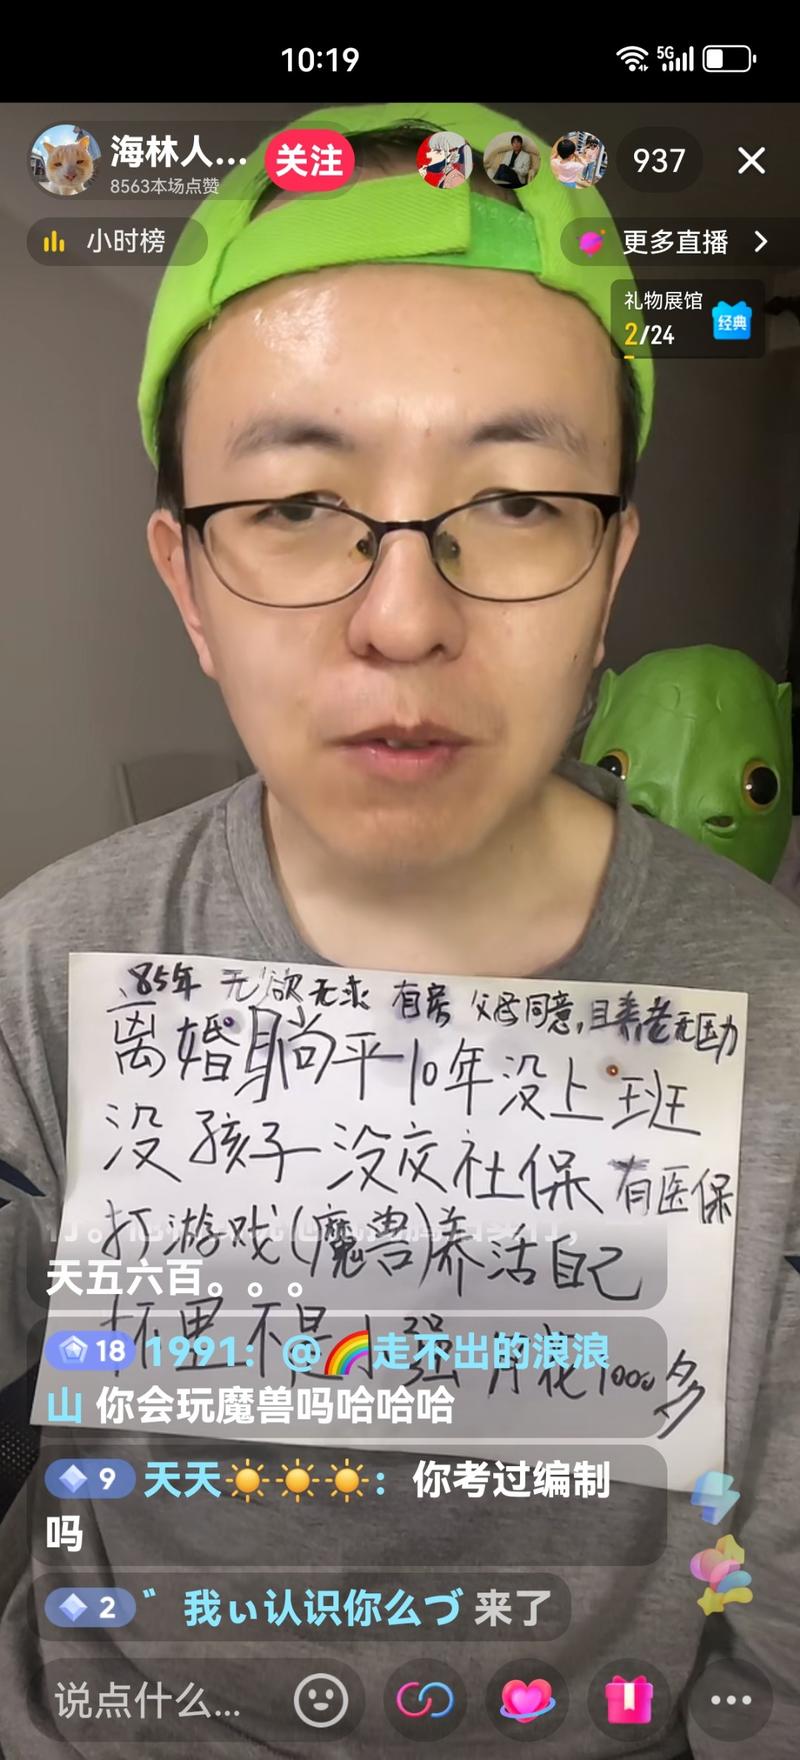 10:19
5G
海林人...
关注
8563本场点赞
937
小时榜
更多直播
礼物展馆
2/24
经典
85年 无欲无求 有房 父母同意,且养老无压力
离婚躺平10年没上班
没孩子没交社保 有医保
打游戏(魔兽)养活自己
怀里不是小强 月花1000多
天五六百。。。
18 1991：@🌈走不出的浪浪
山 你会玩魔兽吗哈哈哈
9 天天☀️☀️☀️：你考过编制
吗
2 ゛我ぃ认识你么づ 来了
说点什么...